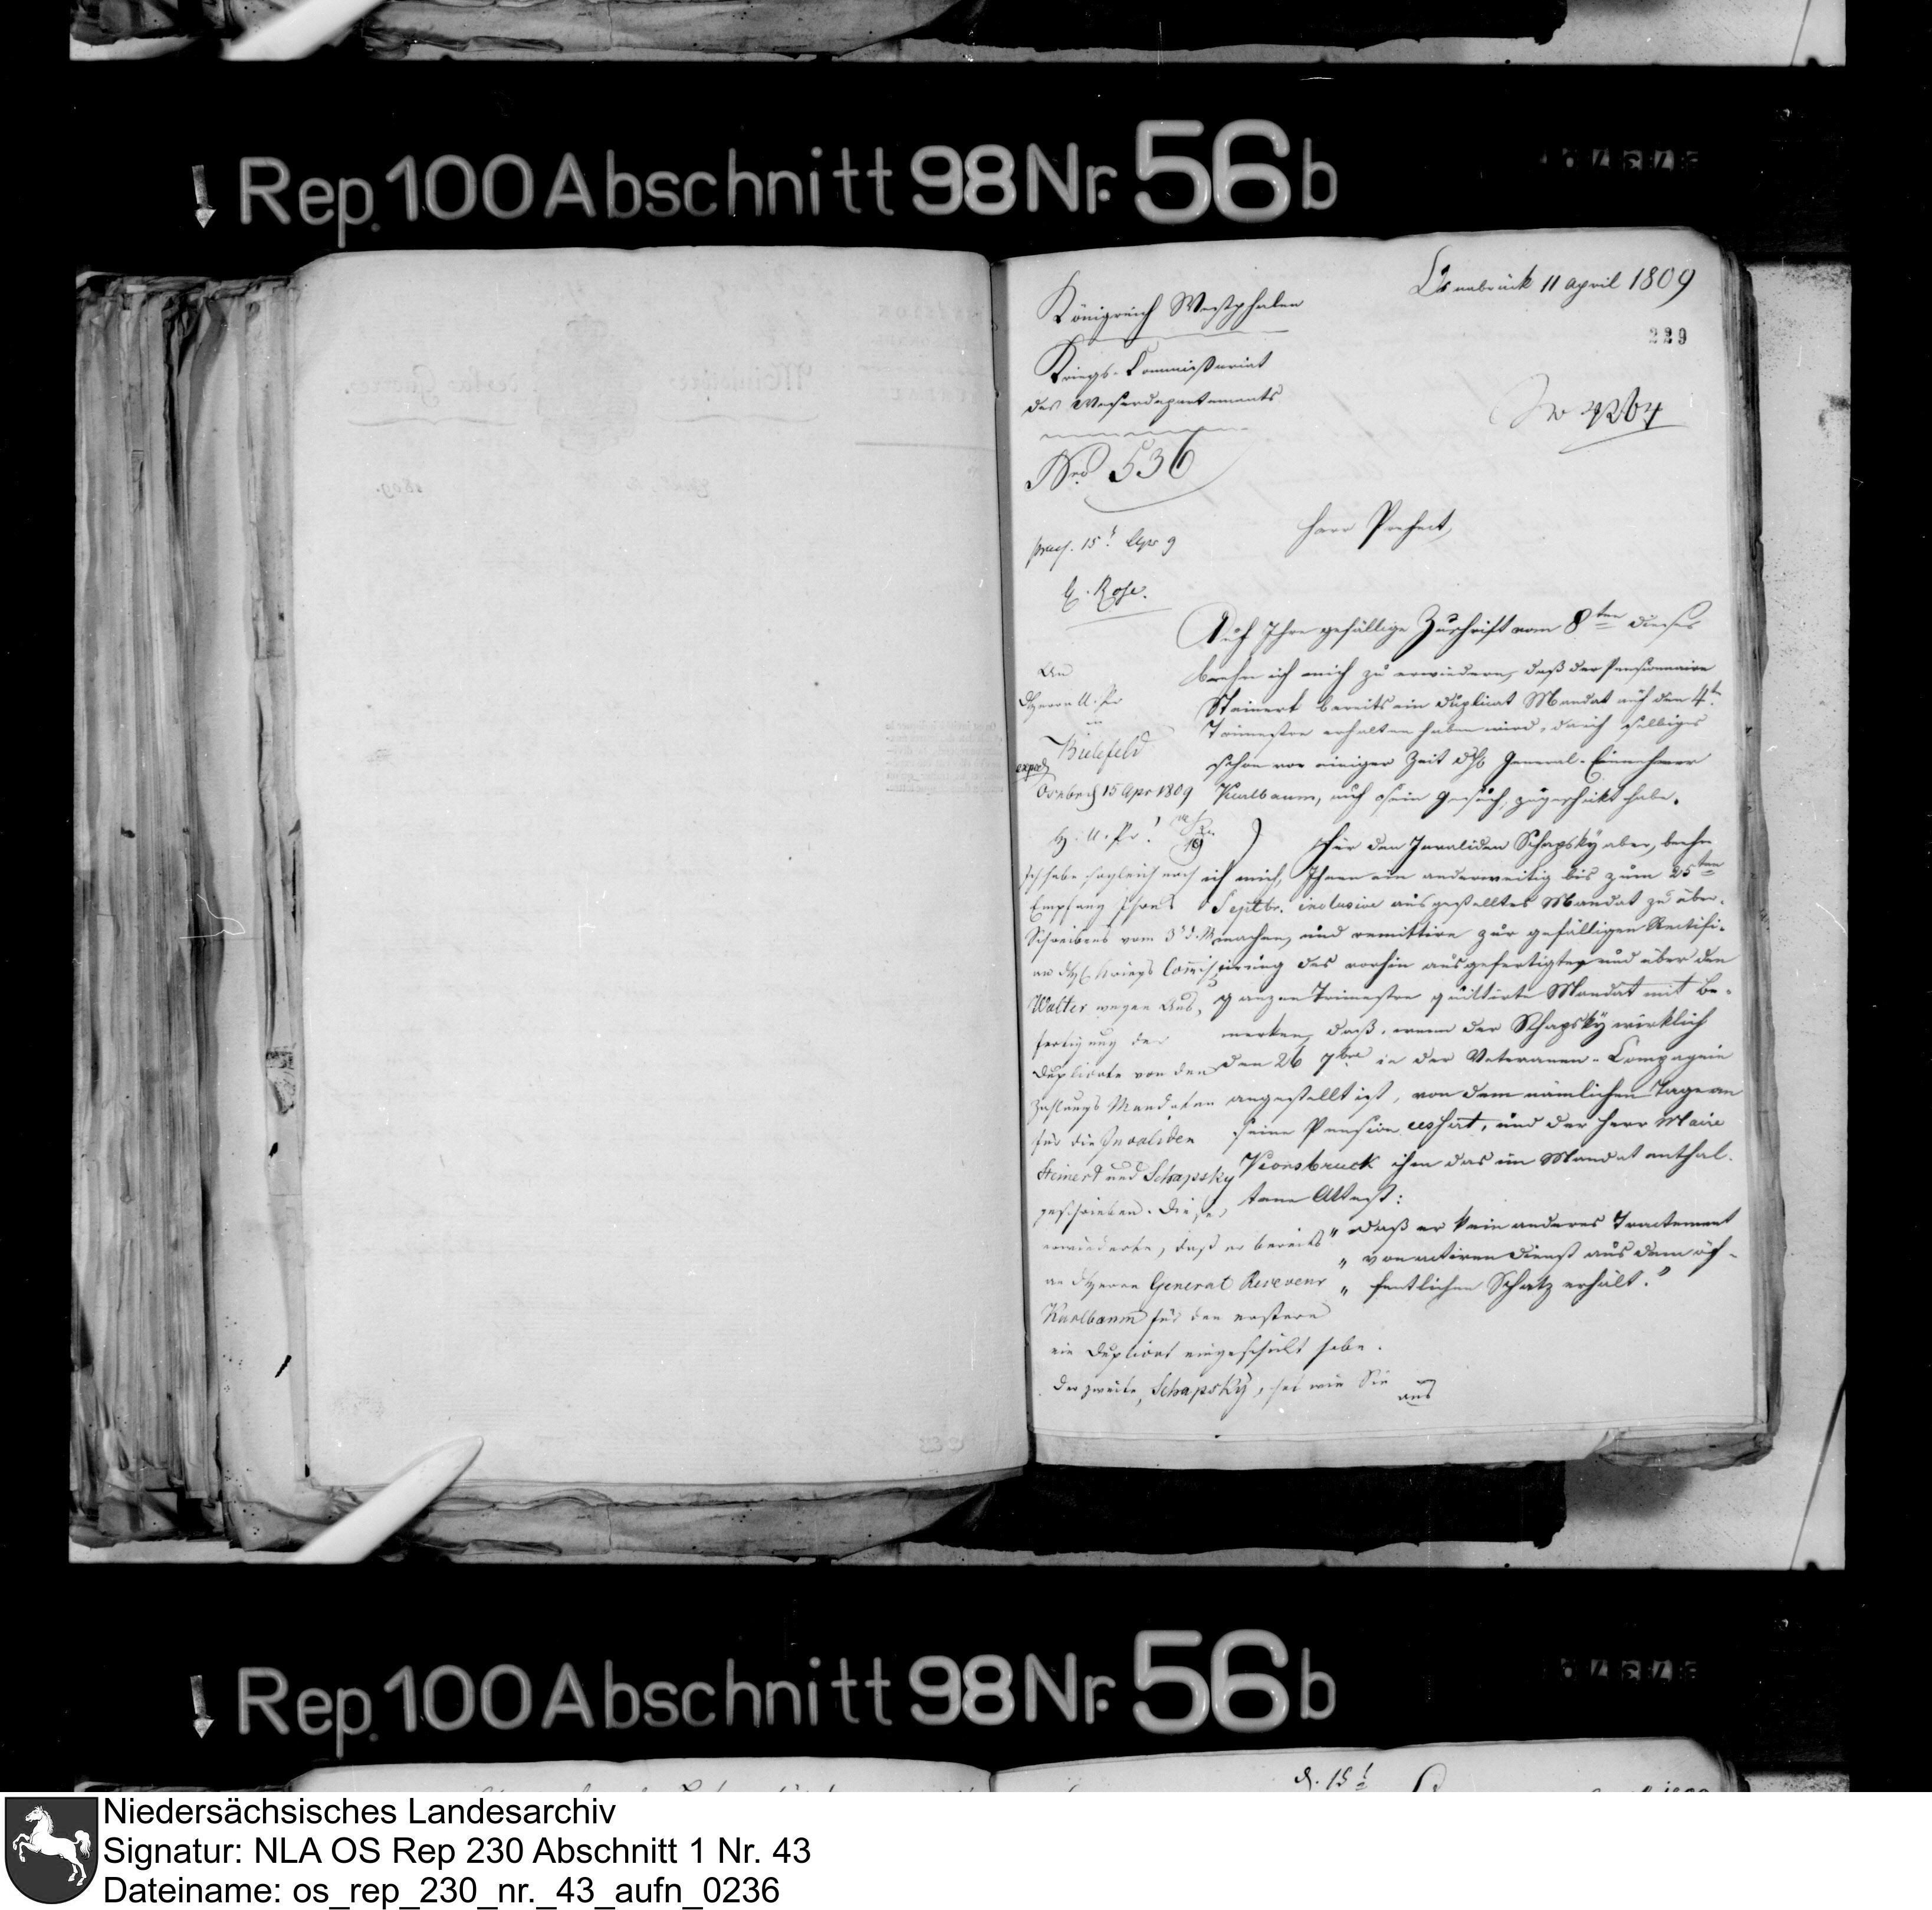 Rep. 100 Abschnitt 98 Nr. 56 b
Osnabrück 11 April 1809
229
Königreich Westphalen
Kriegs-Commissariat
des Weserdepartements
No 4264
Nro 536
praes. 15t Apr 9
Herr Praefect,
E. Rose.
Auf Ihre gefällige Zuschrift vom 8ten dieses
beehre ich mich zu erwiedern, daß der Pensionnaire
Steinert bereits ein Duplicat Mandat auf den 4t.
Trimestre erhalten haben wird, da ich selbiges
schon vor einiger Zeit General-Einnehmer
Karlbaum, auf sein Gesuch, zugeschickt habe.
Für den Invaliden Schapsky aber, beehre
ich mich, Ihnen ein anderweitig bis zum 25ten
Septbr. inclusive ausgestelltes Mandat zu über-
machen, und remittire zur gefälligen Rectifi-
cirung das vorhin ausgefertigte und über den
ganzen Trimestre quittirte Mandat mit Be-
merken, daß, wenn der Schapsky wirklich
den 26 7bre in der Veteranen-Compagnie
angestellt ist, von dem nämlichen Tage an
seine Pension cessirt, und der Herr Maire
Kronsbruck ihm das im Mandat enthal-
tene Attest:
" daß er kein anderes Tractement
" von activen Dienst aus dem öf-
" fentlichen Schatz erhält."
An
Herrn U. Pr
in
Bielefeld
exped
Osnbrck 15 Apr 1809
H. U. Pr!
Ich habe sogleich nach
Empfang Ihres
Schreibens vom 3t d. M
an Kriegs Commiss
Walter wegen Aus-
fertigung der
Duplicate von den
Zahlungs Mandaten
für die Invaliden
Steinert und Schapsky
geschrieben. Dieser
erwiederte, daß er bereits
an Herrn General Receveur
Karlbaum für den erstern
ein Duplicat eingeschickt habe.
Der zweite, Schapsky, sei wie Sie
aus
Rep. 100 Abschnitt 98 Nr. 56 b
Niedersächsisches Landesarchiv
Signatur: NLA OS Rep 230 Abschnitt 1 Nr. 43
Dateiname: os_rep_230_nr._43_aufn_0236